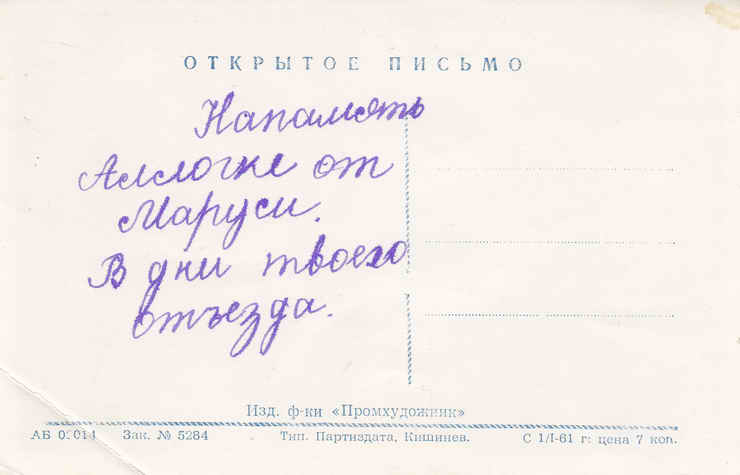 ОТКРЫТОЕ ПИСЬМО
Напамять
Аллочке от
Маруси.
В дни твоего
отъезда.
Изд. ф-ки «Промхудожник»
Зак. № 5284 Тип. Партиздата, Кишинев. С 1/I-61 г: цена 7 коп.